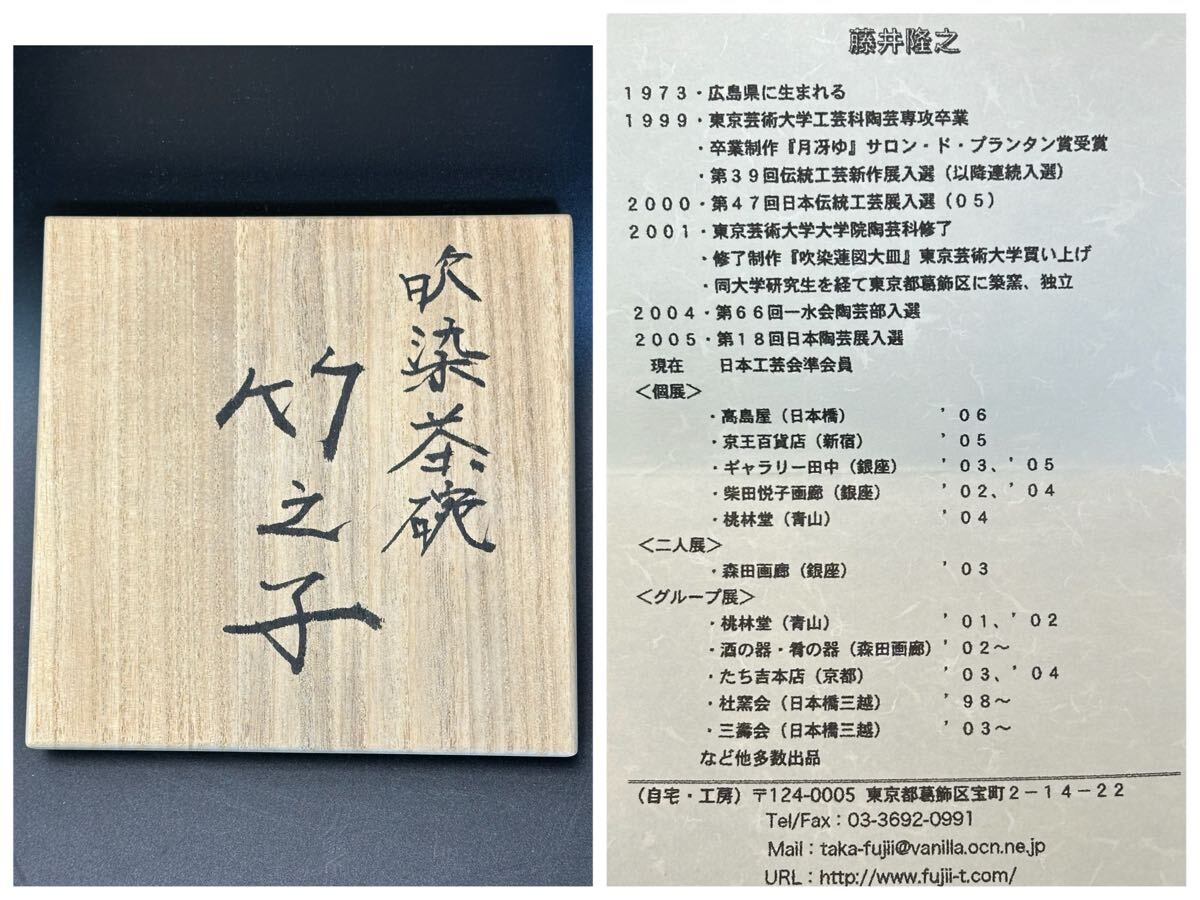 吹染茶碗
竹之子
藤井隆之
1973・広島県に生まれる
1999・東京芸術大学工芸科陶芸専攻卒業
・卒業制作『月冴ゆ』サロン・ド・プランタン賞受賞
・第39回伝統工芸新作展入選(以降連続入選)
2000・第47回日本伝統工芸展入選(05)
2001・東京芸術大学大学院陶芸科修了
・修了制作『吹染蓮図大皿』東京芸術大学買い上げ
・同大学研究生を経て東京都葛飾区に築窯、独立
2004・第66回一水会陶芸部入選
2005・第18回日本陶芸展入選
現在 日本工芸会準会員
<個展>
・高島屋(日本橋) '06
・京王百貨店(新宿) '05
・ギャラリー田中(銀座) '03、'05
・柴田悦子画廊(銀座) '02、'04
・桃林堂(青山) '04
<二人展>
・森田画廊(銀座) '03
<グループ展>
・桃林堂(青山) '01、'02
・酒の器・肴の器(森田画廊) '02〜
・たち吉本店(京都) '03、'04
・杜窯会(日本橋三越) '98〜
・三壽会(日本橋三越) '03〜
など他多数出品
(自宅・工房)〒124-0005 東京都葛飾区宝町2-14-22
Tel/Fax:03-3692-0991
Mail:taka-fujii@vanilla.ocn.ne.jp
URL:http://www.fujii-t.com/